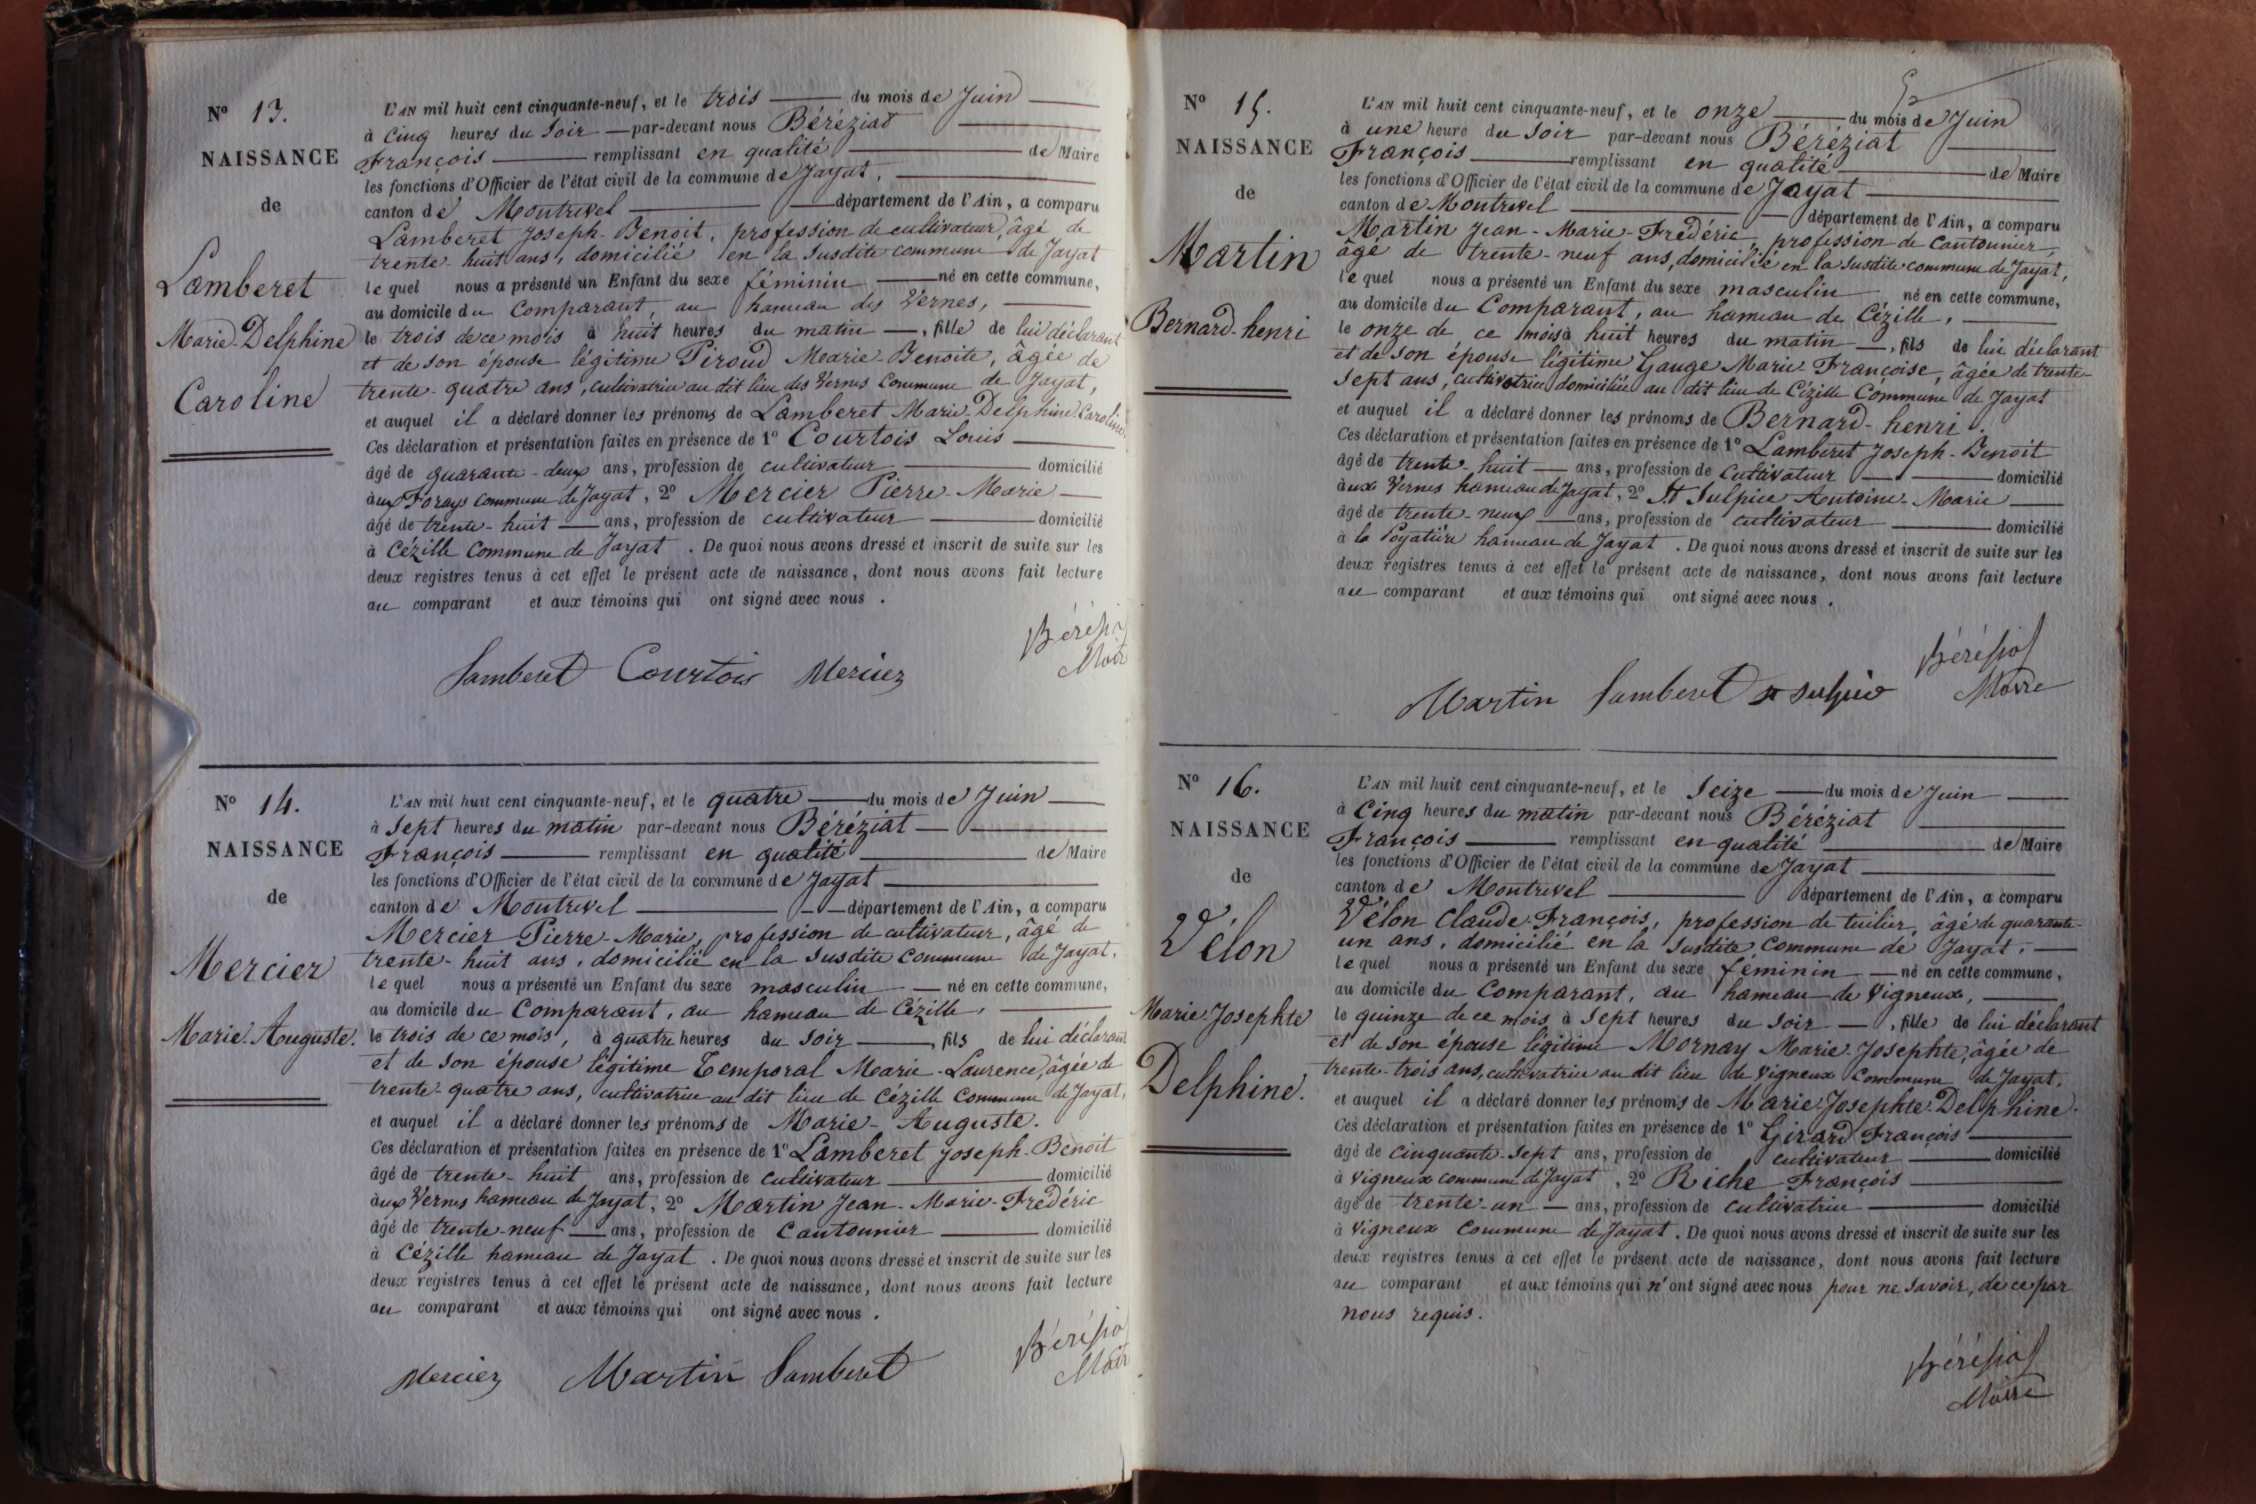 Nº 13.
NAISSANCE
de
Lamberet
Marie-Delphine
Caroline
L'AN mil huit cent cinquante-neuf, et le trois du mois de Juin
à cinq heures du soir par-devant nous Béréziat
François remplissant en qualité de Maire
les fonctions d'Officier de l'état civil de la commune de Jayat,
canton de Montrevel département de l'Ain, a comparu
Lamberet Joseph-Benoit, profession de cultivateur, âgé de
trente-huit ans, domicilié en la susdite commune de Jayat
lequel nous a présenté un Enfant du sexe féminin né en cette commune,
au domicile du Comparant, au hameau des Vernes,
le trois de ce mois à huit heures du matin, fille de lui déclarant
et de son épouse légitime Piroud Marie-Benoite, âgée de
trente-quatre ans, cultivatrice au dit lieu des Vernes Commune de Jayat,
et auquel il a déclaré donner les prénoms de Lamberet Marie-Delphine Caroline.
Ces déclaration et présentation faites en présence de 1º Courtois Louis
âgé de quarante-deux ans, profession de cultivateur domicilié
aux Forays commune de Jayat, 2º Mercier Pierre-Marie
âgé de trente-huit ans, profession de cultivateur domicilié
à Cézille commune de Jayat. De quoi nous avons dressé et inscrit de suite sur les
deux registres tenus à cet effet le présent acte de naissance, dont nous avons fait lecture
au comparant et aux témoins qui ont signé avec nous.
Lamberet Courtois Mercier
Nº 14.
NAISSANCE
de
Mercier
Marie-Auguste.
L'AN mil huit cent cinquante-neuf, et le quatre du mois de Juin
à sept heures du matin par-devant nous Béréziat
François remplissant en qualité de Maire
les fonctions d'Officier de l'état civil de la commune de Jayat
canton de Montrevel département de l'Ain, a comparu
Mercier Pierre-Marie, profession de cultivateur, âgé de
trente-huit ans, domicilié en la susdite commune de Jayat,
lequel nous a présenté un Enfant du sexe masculin né en cette commune,
au domicile du Comparant, au hameau de Cézille,
le trois de ce mois, à quatre heures du soir, fils de lui déclarant
et de son épouse légitime Temporal Marie-Laurence, âgée de
trente-quatre ans, cultivatrice au dit lieu de Cézille commune de Jayat,
et auquel il a déclaré donner les prénoms de Marie-Auguste.
Ces déclaration et présentation faites en présence de 1º Lamberet Joseph-Benoit
âgé de trente-huit ans, profession de cultivateur domicilié
aux Vernes hameau de Jayat, 2º Martin Jean-Marie-Frédéric
âgé de trente-neuf ans, profession de Cantonnier domicilié
à Cézille hameau de Jayat. De quoi nous avons dressé et inscrit de suite sur les
deux registres tenus à cet effet le présent acte de naissance, dont nous avons fait lecture
au comparant et aux témoins qui ont signé avec nous.
Mercier Martin Lamberet
Nº 15.
NAISSANCE
de
Martin
Bernard-henri
L'AN mil huit cent cinquante-neuf, et le onze du mois de Juin
à une heure du soir par-devant nous Béréziat
François remplissant en qualité de Maire
les fonctions d'Officier de l'état civil de la commune de Jayat
canton de Montrevel département de l'Ain, a comparu
Martin Jean-Marie-Frédéric, profession de Cantonnier,
âgé de trente-neuf ans, domicilié en la susdite commune de Jayat,
lequel nous a présenté un Enfant du sexe masculin né en cette commune,
au domicile du Comparant, au hameau de Cézille,
le onze de ce mois à huit heures du matin, fils de lui déclarant
et de son épouse légitime Gauge Marie Françoise, âgée de trente-
sept ans, cultivatrice domiciliée au dit lieu de Cézille Commune de Jayat
et auquel il a déclaré donner les prénoms de Bernard-henri.
Ces déclaration et présentation faites en présence de 1º Lamberet Joseph-Benoit
âgé de trente-huit ans, profession de Cultivateur domicilié
aux Vernes hameau de Jayat, 2º St Sulpice Antoine-Marie
âgé de trente-neuf ans, profession de cultivateur domicilié
à la Poyatière hameau de Jayat. De quoi nous avons dressé et inscrit de suite sur les
deux registres tenus à cet effet le présent acte de naissance, dont nous avons fait lecture
au comparant et aux témoins qui ont signé avec nous.
Béréziat
Martin Lamberet st sulpice Maire
Nº 16.
NAISSANCE
de
Vélon
Marie-Josephte
Delphine.
L'AN mil huit cent cinquante-neuf, et le Seize du mois de Juin
à Cinq heures du matin par-devant nous Béréziat
François remplissant en qualité de Maire
les fonctions d'Officier de l'état civil de la commune de Jayat
canton de Montrevel département de l'Ain, a comparu
Vélon Claude-François, profession de tuilier, âgé de quarante-
un ans, domicilié en la susdite Commune de Jayat,
lequel nous a présenté un Enfant du sexe féminin né en cette commune,
au domicile du Comparant, au hameau de Vigneux,
le quinze de ce mois à sept heures du soir, fille de lui déclarant
et de son épouse légitime Mornay Marie-Josephte, âgée de
trente-trois ans, cultivatrice au dit lieu de Vigneux Commune de Jayat.
et auquel il a déclaré donner les prénoms de Marie-Josephte-Delphine.
Ces déclaration et présentation faites en présence de 1º Girard François
âgé de cinquante-sept ans, profession de cultivateur domicilié
à Vigneux commune de Jayat, 2º Riche François
âgé de trente-un ans, profession de cultivatrice domicilié
à Vigneux Commune de Jayat. De quoi nous avons dressé et inscrit de suite sur les
deux registres tenus à cet effet le présent acte de naissance, dont nous avons fait lecture
au comparant et aux témoins qui n'ont signé avec nous pour ne savoir, de ce par
nous requis.
Béréziat
Maire